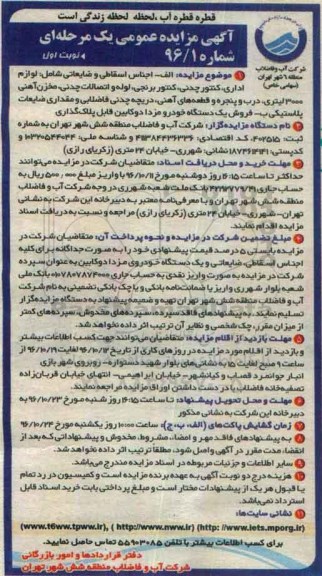 قطره قطره آب، لحظه لحظه زندگی است
آگهی مزایده عمومی یک مرحله‌ای
شماره ۹۶/۱
نوبت اول
شرکت آب و فاضلاب
منطقه ۶ شهر تهران
(سهامی خاص)
۱ موضوع مزایده: الف- اجناس اسقاطی و ضایعاتی شامل: لوازم
اداری، کنتور چدنی، کنتور برنجی، لوله و اتصالات چدنی، مخزن آهنی
۳۰۰۰ لیتری، درب و پنجره و قطعه‌های آهنی، دریچه چدنی فاضلابی و مقداری ضایعات
پلاستیکی ب- فروش یک دستگاه خودرو مزدا دوکابین قابل پلاک‌گذاری
۲ نام دستگاه مزایده‌گزار: شرکت آب و فاضلاب منطقه شش شهر تهران به شماره
ثبت: ۴۰۲۵۱۵ کد اقتصادی: ۴۱۱۳۸۴۴۳۶۲۳۶ و شناسه ملی: ۱۰۳۲۰۵۴۴۰۴۴
کدپستی: ۱۸۷۳۶۱۴۱ نشانی: شهرری- خیابان ۲۴ متری (زکریای رازی)
۳ مهلت خرید و محل دریافت اسناد: متقاضیان شرکت در مزایده می‌توانند
حداکثر تا ساعت ۱۶:۱۵ روز دوشنبه مورخ ۹۶/۱۰/۱۱ با واریز مبلغ ۵۰۰٫۰۰۰ ریال به
حساب جاری بانک ملت شعبه شهرری در وجه شرکت آب و فاضلاب
منطقه شش شهر تهران و با معرفی‌نامه معتبر به دبیرخانه این شرکت به نشانی
تهران- شهرری- خیابان ۲۴ متری (زکریای رازی) مراجعه و نسبت به دریافت اسناد
مزایده اقدام نمایند.
۴ مبلغ تضمین شرکت در مزایده و نحوه پرداخت آن: متقاضیان شرکت در
مزایده بایستی ۵ درصد قیمت پیشنهادی خود را به صورت جداگانه برای کلیه
اجناس اسقاطی، ضایعاتی و یک دستگاه خودروی مزدا دوکابین به عنوان سپرده
شرکت در مزایده به صورت واریز نقدی به حساب جاری ۰۱۰۷۸۰۷۸۷۴۰۰۰ بانک ملی
شعبه بلوار شهرری واریز یا ضمانت‌نامه بانکی و یا چک بانکی تضمینی به نام شرکت
آب و فاضلاب منطقه شش شهر تهران تهیه و ضمیمه پیشنهاد به دستگاه مزایده‌گزار
تسلیم نمایند. به پیشنهادهای فاقد سپرده، سپرده‌های مخدوش، سپرده‌های کمتر
از میزان مقرر، چک شخصی و نظایر آن ترتیب اثر داده نخواهد شد.
۵ مهلت بازدید از اقلام مزایده: متقاضیان می‌توانند جهت کسب اطلاعات بیشتر
و بازدید از اقلام مورد مزایده در روزهای کاری از تاریخ ۹۶/۱۰/۱۲ لغایت ۹۶/۱۰/۱۹ از
ساعت ۹ صبح لغایت ۱۵ به نشانی‌های بلوار شهید دستواره- روبروی شهر بازی
انبار جوانمرد قصاب و کیانشهر- خیابان ابراهیمی- انتهای خیابان قربان‌زاده
تصفیه‌خانه فاضلاب با در دست داشتن اوراق مزایده مراجعه نمایند.
۶ مهلت و محل تحویل پیشنهاد: تا ساعت ۱۶:۱۵ روز شنبه مورخ ۹۶/۱۰/۲۳ به
دبیرخانه این شرکت به نشانی مذکور
۷ زمان گشایش پاکت‌های (الف، ب، ج): ساعت ۱۰:۰۰ روز یکشنبه مورخ ۹۶/۱۰/۲۴
۸ به پیشنهادهای فاقد مهر و امضاء، مشروط، مخدوش و پیشنهاداتی که بعد از
انقضاء مدت مقرر در آگهی واصل شود، مطلقا ترتیب اثر داده نخواهد شد.
۹ سایر اطلاعات و جزئیات مربوطه در اسناد مزایده مندرج می‌باشد.
۱۰ هزینه درج دو نوبت آگهی به عهده برنده مزایده است و کمیسیون در رد تمام
یا قبول هر یک از پیشنهادات مختار است و مبلغ پرداختی بابت خرید اسناد قابل
استرداد نمی‌باشد.
۱۱ نشانی سایت‌ها:
(www.t6ww.tpww.ir), ( http://www.nww.ir) (http: //www.iets.mporg.ir)
برای کسب اطلاعات بیشتر با تلفن ۵۵۹۰۳۰۸۵ تماس حاصل نمایید.
دفتر قراردادها و امور بازرگانی
شرکت آب و فاضلاب منطقه شش شهر تهران